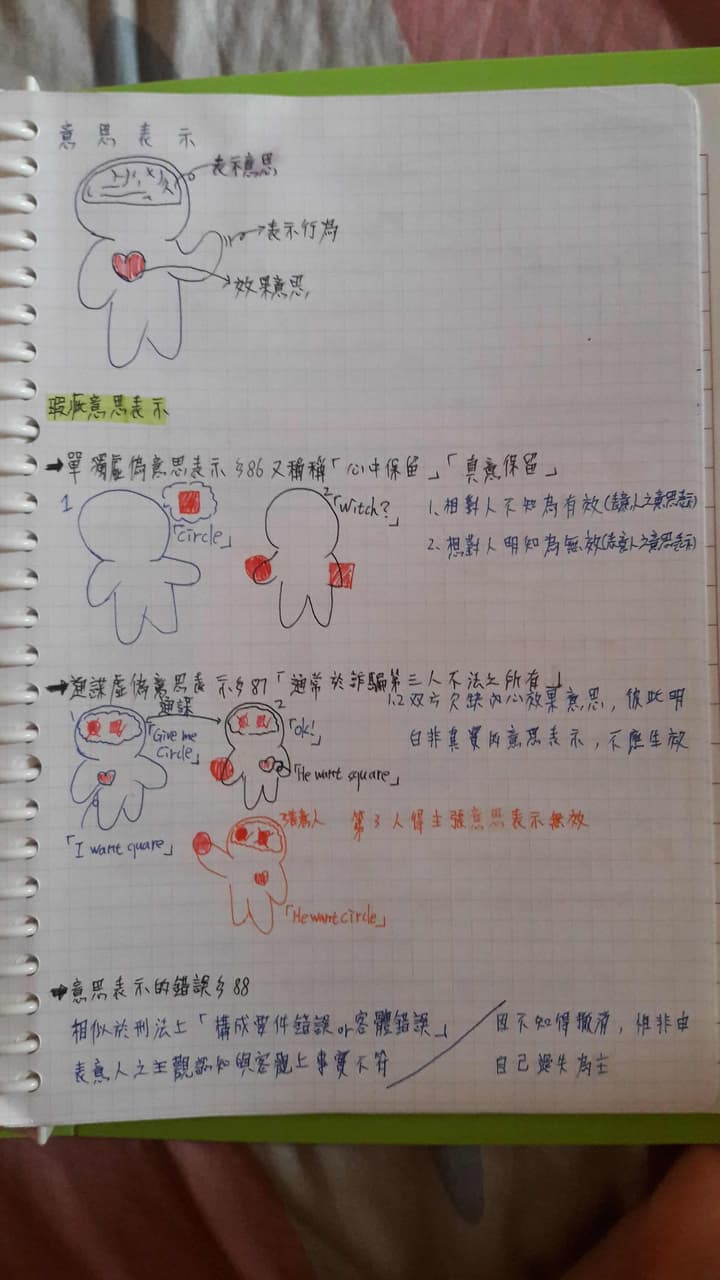 意思表示
表示意思
表示行為
效果意思
瑕疵意思表示
→單獨虛偽意思表示§86又稱稱「心中保留」「真意保留」
1
「circle」
2
「Witch?」
1、相對人不知為有效(表意人之意思表示)
2、想對人明知為無效(表意人之意思表示)
→通謀虛偽意思表示§87「通常於詐騙第三人不法之所有」
1
通謀
「Give me
Circle」
2
「ok!」
「He want square」
「I want quare」
1.2 双方欠缺內心效果意思，彼此明
白非真實的意思表示，不應生效
3善意人
第3人得主張意思表示無效
「He want circle」
→意思表示的錯誤§88
相似於刑法上「構成要件錯誤or客體錯誤」
表意人之主觀認知與客觀上事實不符
因不知得撤消，惟非由
自己過失為主